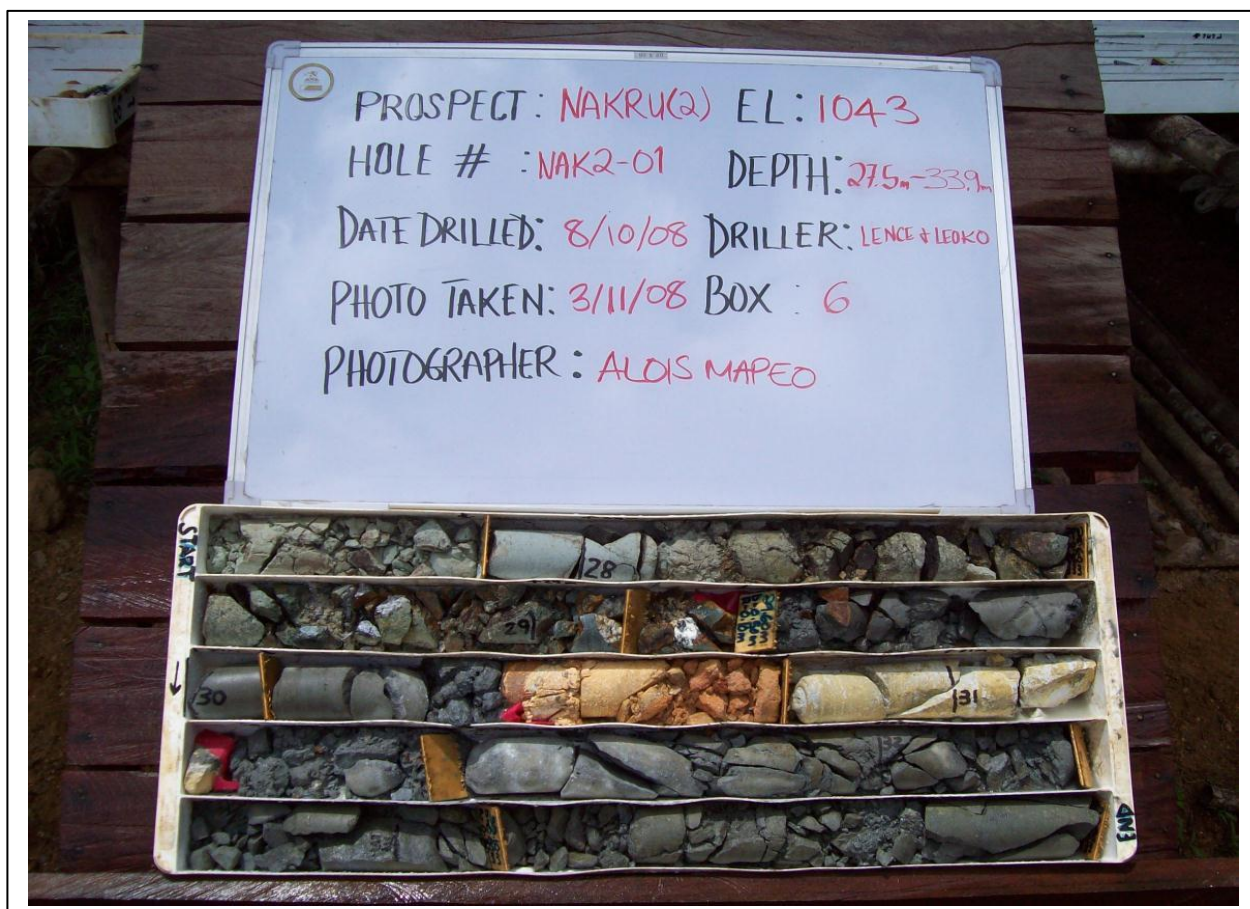 PROSPECT: NAKRU(2) EL: 1043
HOLE # : NAK2-01 DEPTH: 27.5m-33.9m
DATE DRILLED: 8/10/08 DRILLER: LENCE & LEOKO
PHOTO TAKEN: 3/11/08 BOX : 6
PHOTOGRAPHER: ALOIS MAPEO
START
28
29
30
31
END